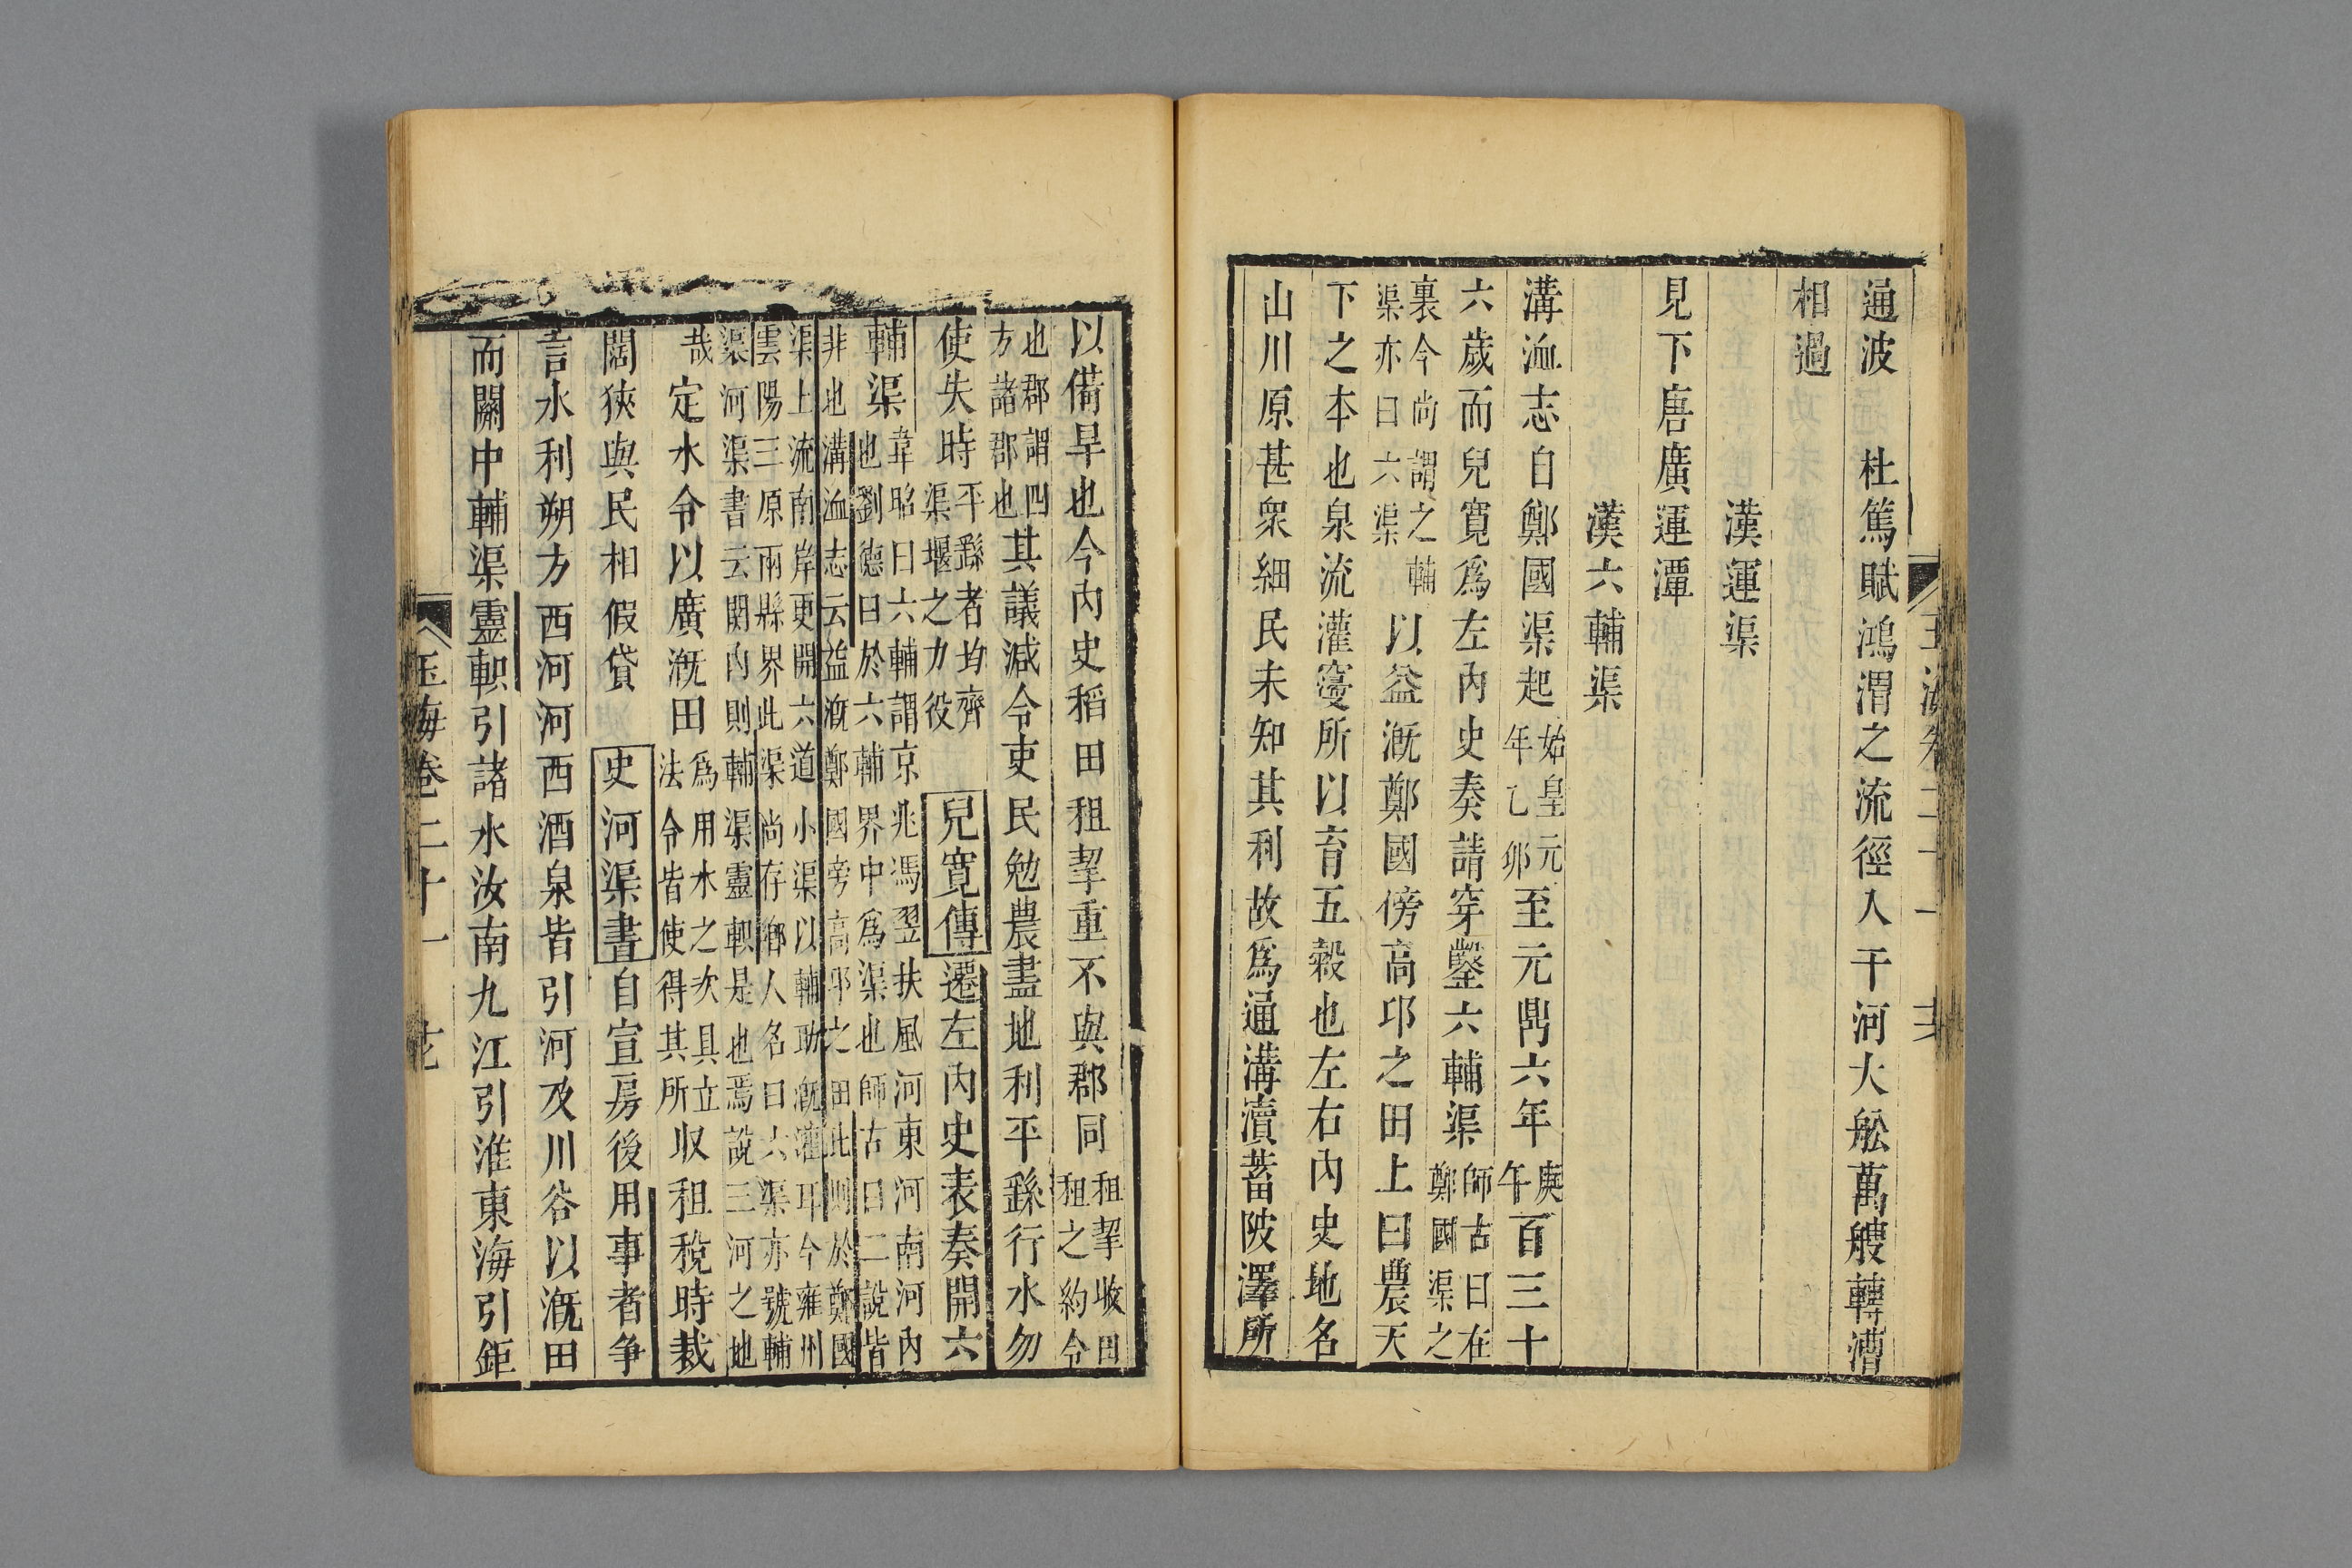 通波　杜篤賦鴻渭之流徑入于河大舩萬艘轉漕
相過
漢運渠
見下唐廣運潭
漢六輔渠
溝洫志自鄭國渠起始皇元年乙卯至元鼎六年庚午百三十
六歲而兒寬爲左內史奏請穿鑿六輔渠師古曰在鄭國渠之
裏今尚謂之輔渠亦曰六渠以益溉鄭國傍高卭之田上曰農天
下之本也泉流灌寖所以育五穀也左右內史地名
山川原甚衆細民未知其利故爲通溝瀆蓄陂澤所
以備旱也今內史稻田租挈重不與郡同租挈收田租之約令
也郡謂四方諸郡也其議減令吏民勉農盡地利平繇行水勿
使失時平繇者均齊渠堰之力役兒寛傳遷左內史表奏開六
輔渠韋昭曰六輔謂京兆馮翌扶風河東河南河內也劉德曰於六輔界中爲渠也師古曰二說皆
非也溝洫志云益溉鄭國旁高卭之田此則於鄭國
渠上流南岸更開六道小渠以輔助溉灌耳今雍州雲陽三原兩縣界此渠尚存鄉人名曰六渠亦號輔
渠河渠書云関內則輔渠靈軹是也焉說三河之地
哉定水令以廣溉田爲用水之次具立法令皆使得其所収租稅時裁
闊狹與民相假貸　史河渠書自宣房後用事者爭
言水利朔方西河河西酒泉皆引河及川谷以溉田
而關中輔渠靈軹引諸水汝南九江引淮東海引鉅
玉海卷二十一